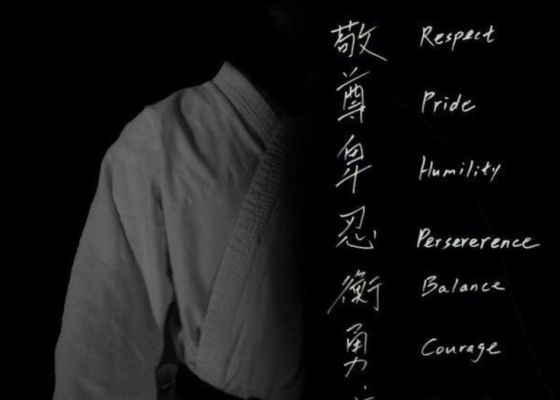 敬 Respect
尊 Pride
卑 Humility
忍 Perserverence
衡 Balance
勇 Courage